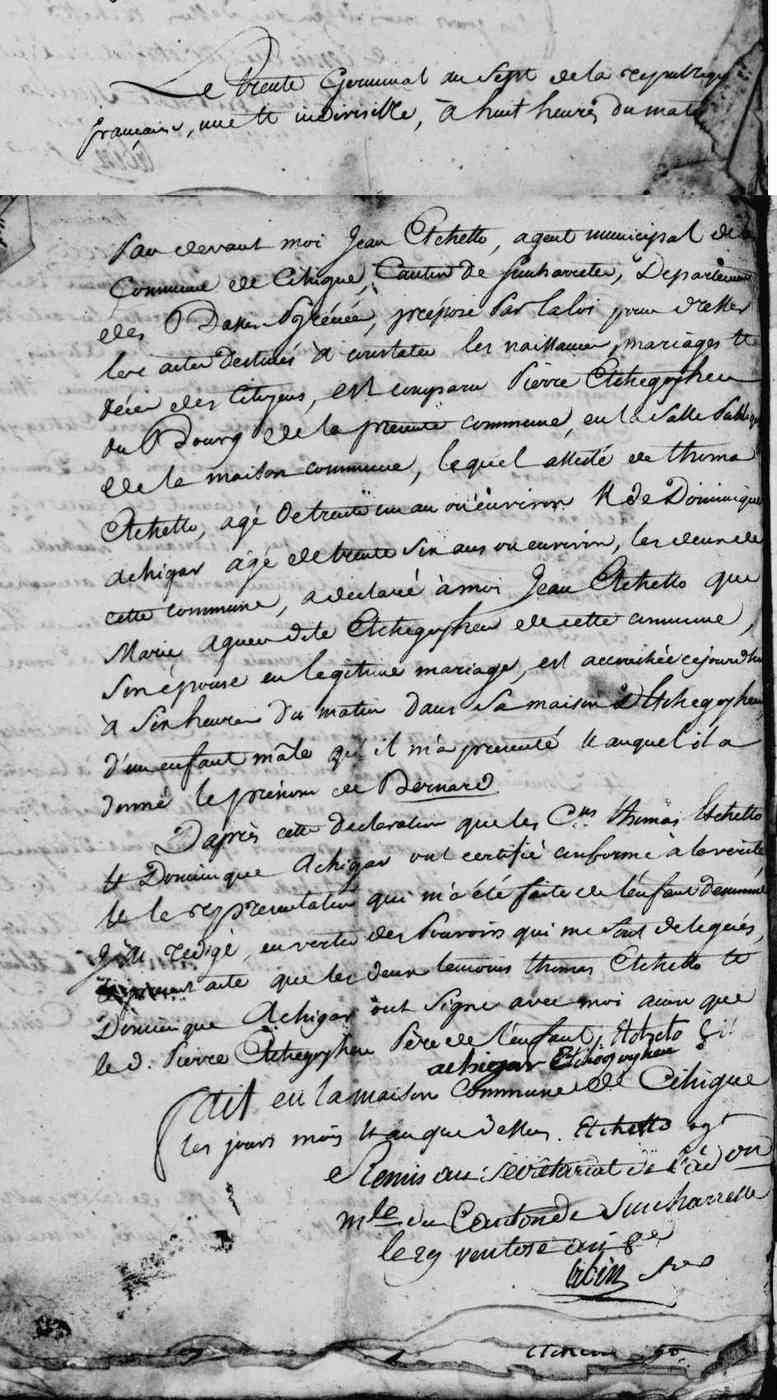 Le trente Germinal an Sept de la republique
française, une et indivisible, à huit heures du matin
Par devant moi Jean Etchetto, agent municipal de la
Commune de Cihigue, Canton de Sunharrette, Departement
des Basses Pyrénées, préposé Par la loi pour dresser
les actes destinés à constater les naissances, mariages et
décès des Citoyens, est comparu Pierre Etchegoyhen
du Bourg de la presente commune, en la Salle Publique
de la maison commune, lequel assisté de thomas
Etchetto, agé de trente un an ou environ et de Dominique
achigar agé de trente six ans ou environ, les deux de
cette commune, a declaré à moi Jean Etchetto que
Marie aguer dite Etchegoyhen de cette commune,
Son épouse en legitime mariage, est accouchée cejourdhui
à Six heures du matin dans Sa maison d'Etchegoyhen,
d'un enfant mâle qu'il m'a presenté et auquel il a
donné le prénom de Bernard
D'après cette declaration que les Cens thomas Etchetto
et Dominique Achigar ont certifié conforme à la verité,
et la representation qui m'a été faite de l'enfant denommé
J'ai redigé, en vertu des Pouvoirs qui me sont delegués,
le present acte que les deux temoins thomas Etchetto et
Dominique Achigar ont Signé avec moi ainsi que
le d. Pierre Etchegoyhen Père de l'enfant, Etcheto
achigar Etchegoyhen
Fait en la maison Commune de Cihigue
les jours mois et an que dessus. Etchetto agt
Remis au Secretariat de l'ad on
mle du Canton de Sunharrette
le 29 ventose an 8e